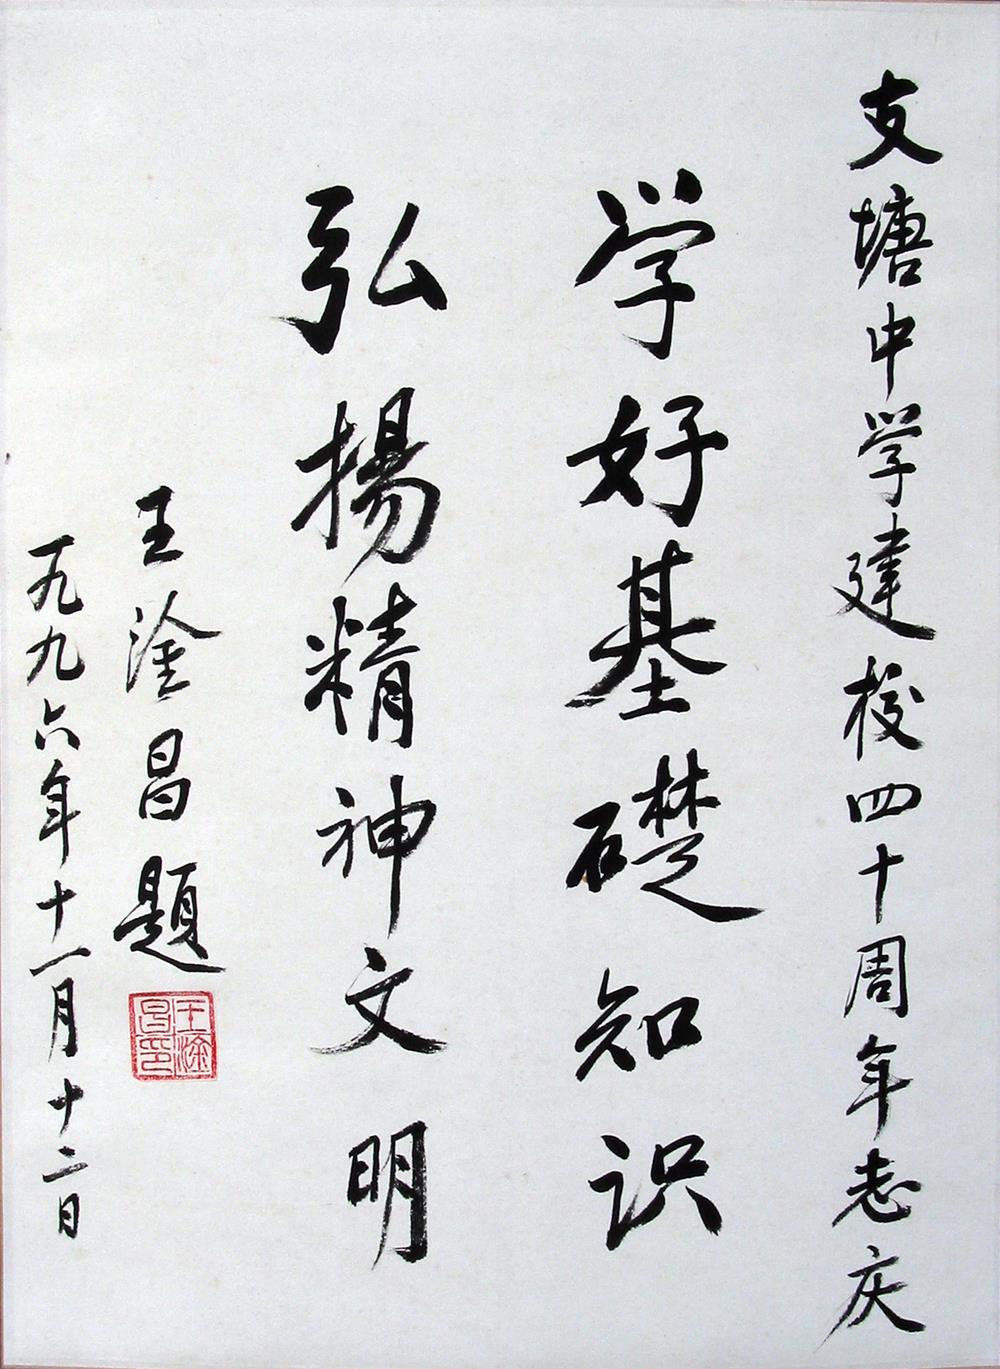 支塘中学建校四十周年志庆
学好基礎知识
弘揚精神文明
王淦昌題
王淦昌印
一九九六年十一月十二日